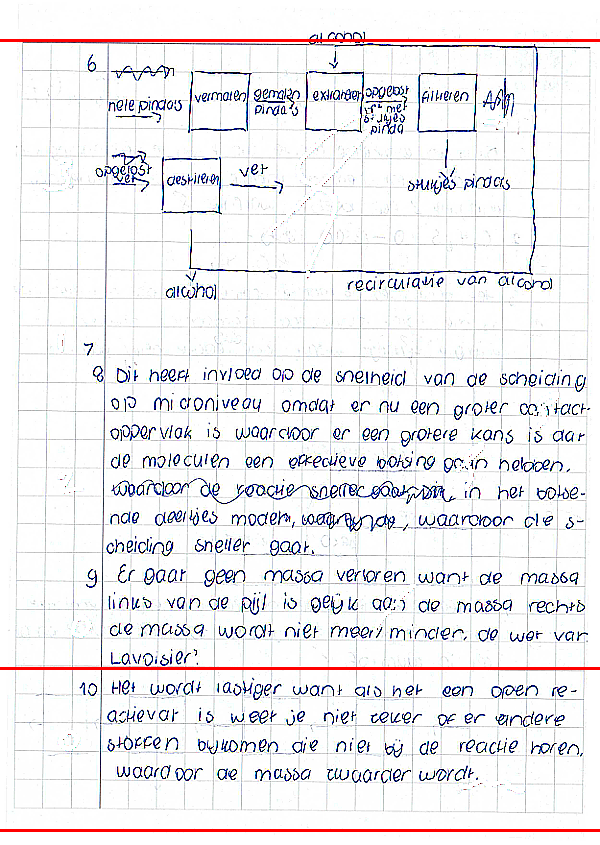 alcohol
6
hele pindas
vermalen
gemalen pinda's
extraheren
opgelost
vet met
stukjes
pinda
filtreren
opgelost
vet
destilleren
vet
stukjes pindas
alcohol
recirculatie van alcohol
7
8 Dit heeft invloed op de snelheid van de scheiding
op microniveau omdat er nu een groter contact-
oppervlak is waardoor er een grotere kans is dat
de moleculen een effectieve botsing gaan hebben.
in het botse-
nde deeltjes modem, waardoor die s-
cheiding sneller gaat.
9 Er gaat geen massa verloren want de massa
links van de pijl is gelijk aan de massa rechts
de massa wordt niet meer/minder. de wet van
Lavoisier.
10 Het wordt lastiger want als het een open re-
actievat is weet je niet zeker of er andere
stoffen bijkomen die niet bij de reactie horen.
waardoor de massa zwaarder wordt.